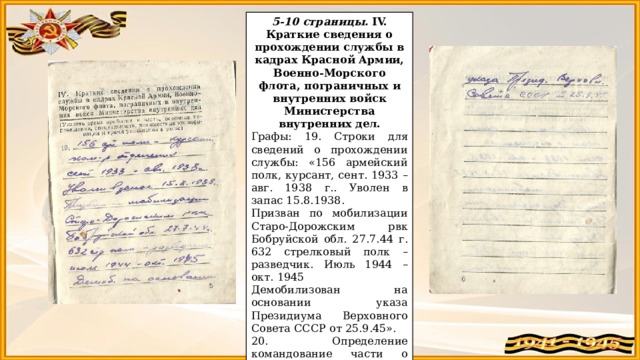 IV. Краткие сведения о прохождении
службы в кадрах Красной Армии, Военно-
Морского флота, пограничных и внутрен-
них войск Министерства внутренних дел
19. 156
сент 1933 - авг. 1938
Уволен в запас 15.8.1938.
27.7.44.
632
июль 1944 - окт. 1945
Демоб. на основании
5
5-10 страницы. IV.
Краткие сведения о
прохождении службы в
кадрах Красной Армии,
Военно-Морского
флота, пограничных и
внутренних войск
Министерства
внутренних дел.
Графы: 19. Строки для
сведений о прохождении
службы: «156 армейский
полк, курсант, сент. 1933 –
авг. 1938 г.. Уволен в
запас 15.8.1938.
Призван по мобилизации
Старо-Дорожским рвк
Бобруйской обл. 27.7.44 г.
632 стрелковый полк –
разведчик. Июль 1944 –
окт. 1945
Демобилизован на
основании указа
Президиума Верховного
Совета СССР от 25.9.45».
20. Определение
командование части о
указа Презид. Верховн.
Совета СССР
6
1941 - 1945